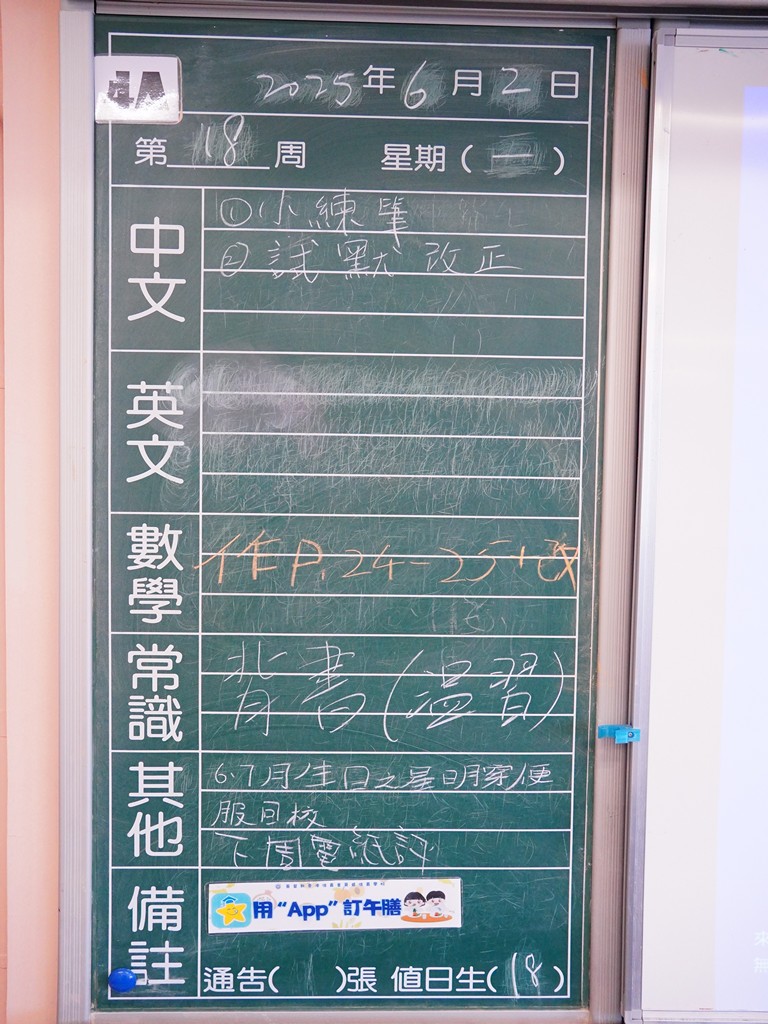 2025年6月2日
第18周 星期(一)
中文
①小練筆
②試默改正
英文
數學
作P.24-25+改
常識
背書(溫習)
其他
6.7月生日之星明穿便
服回校
下周電紙評
備註
用“App”訂午膳
通告( )張 值日生(18)